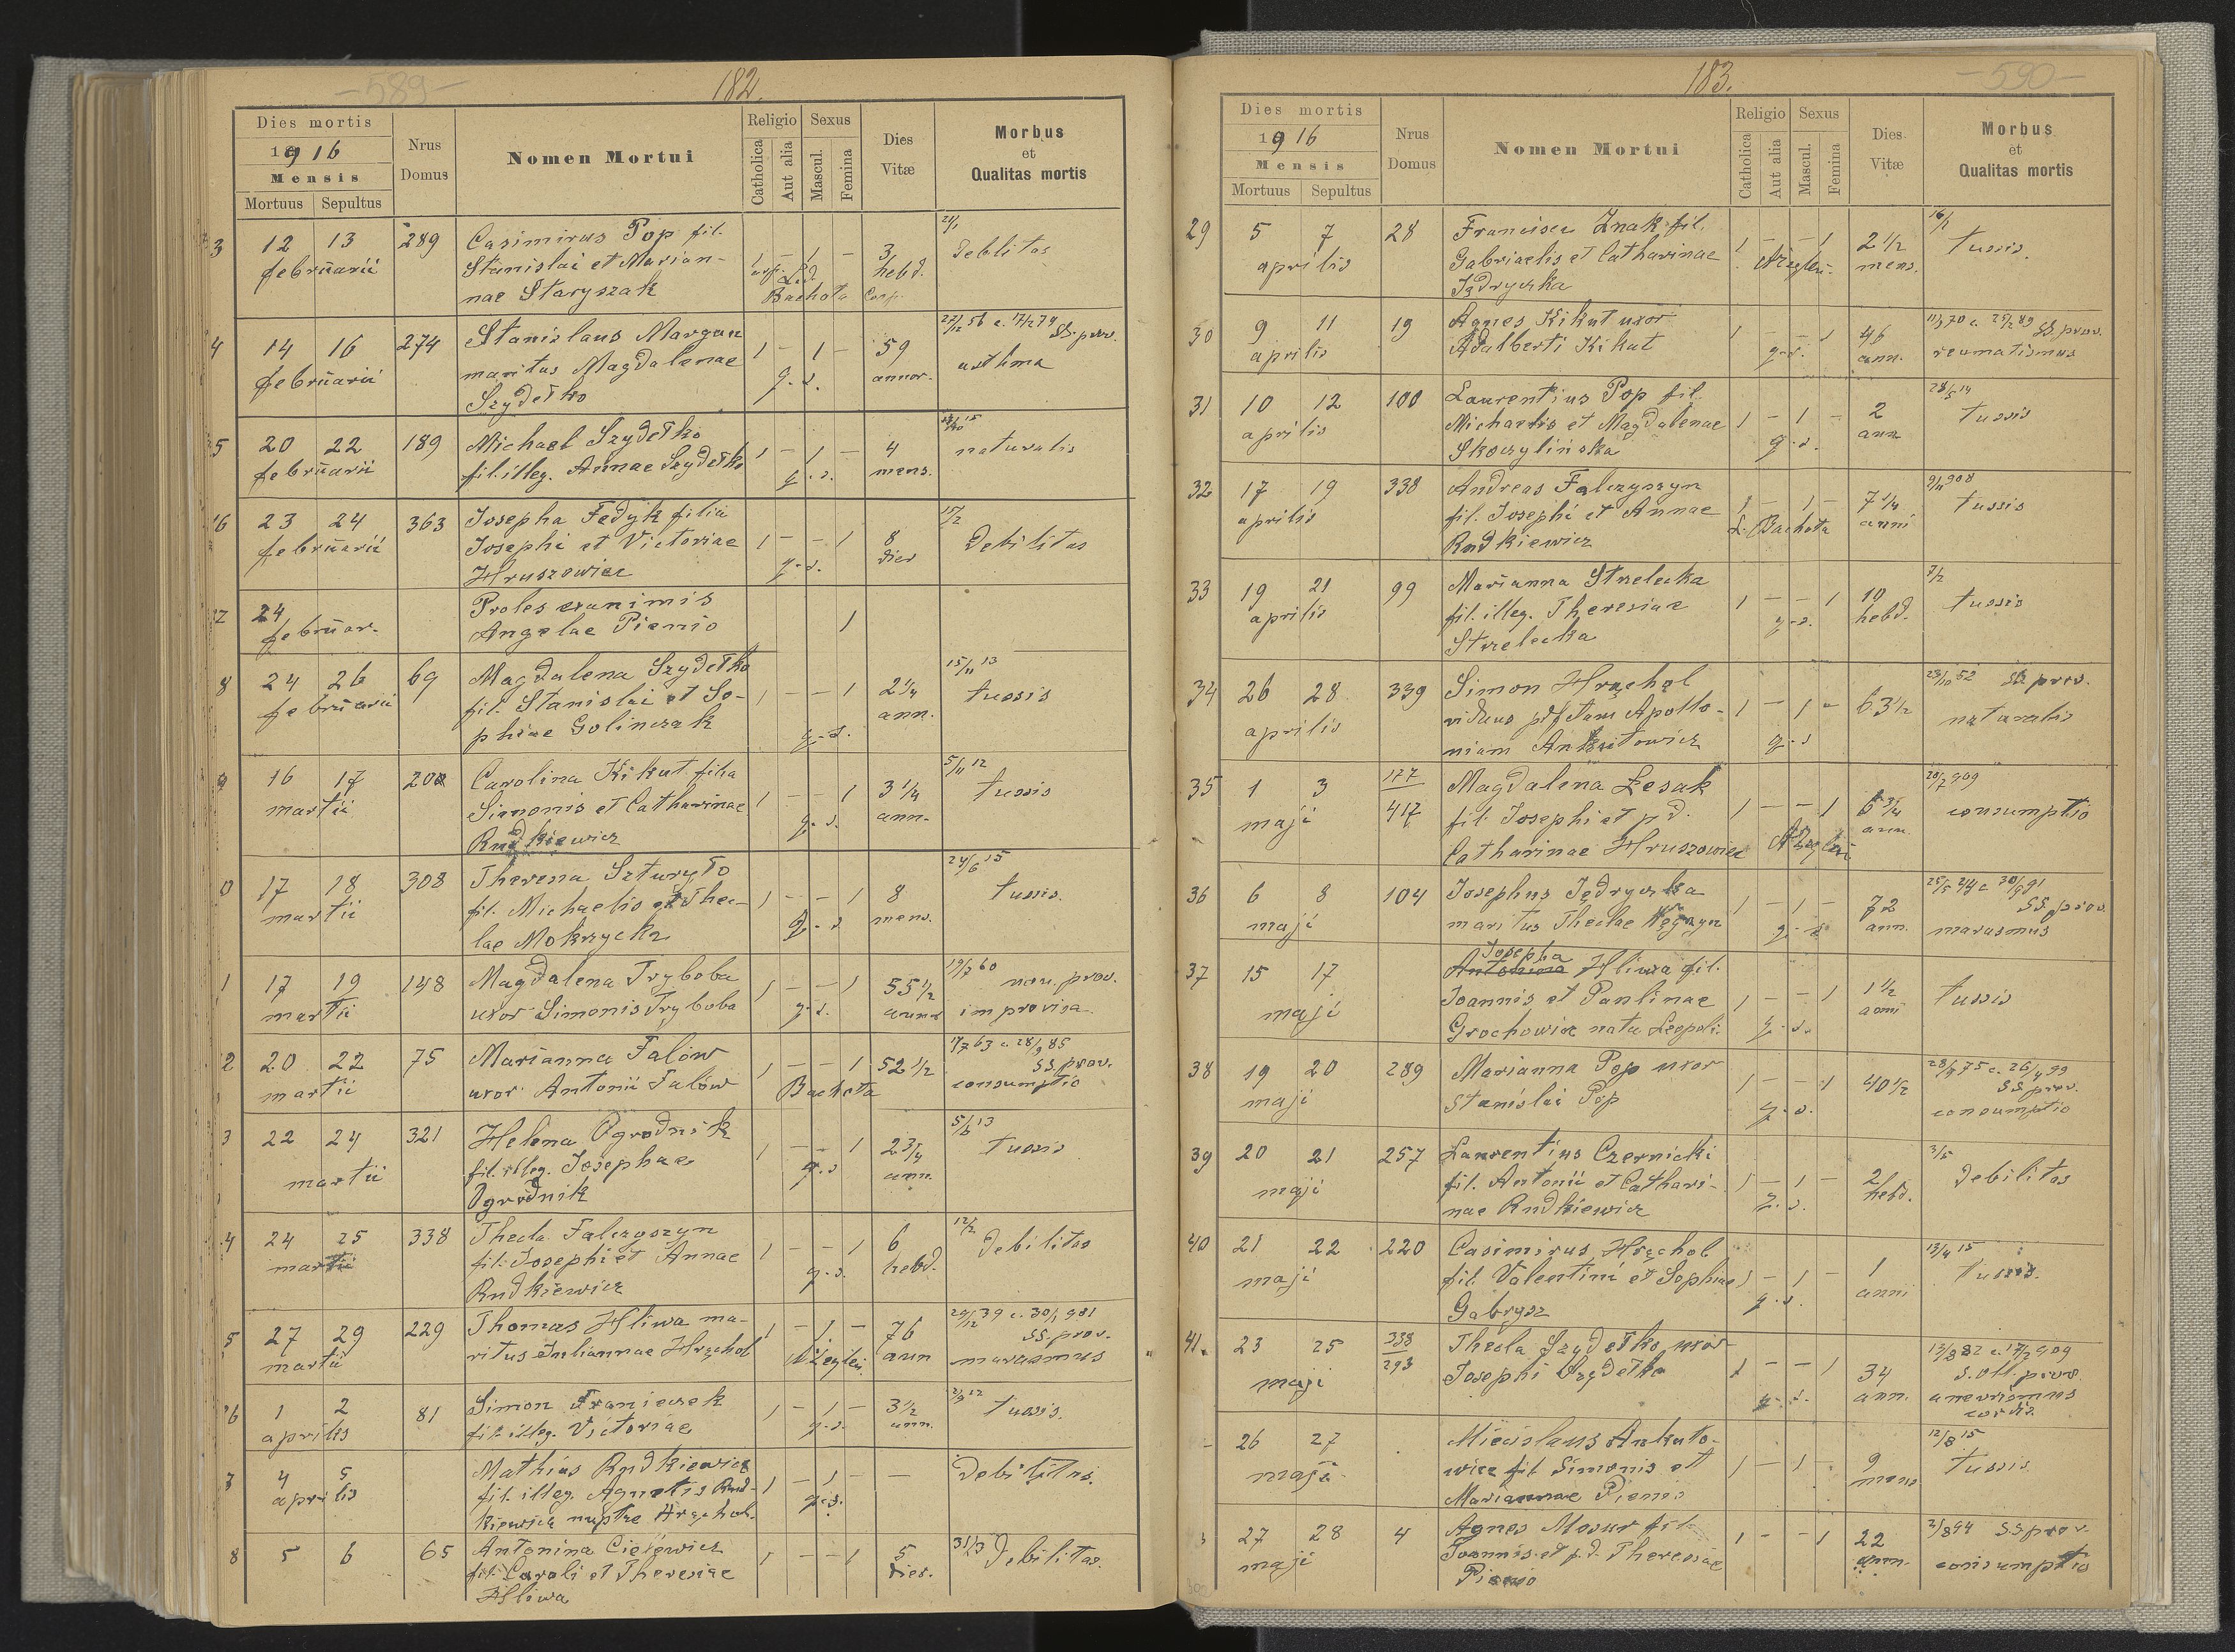 -589-
182.
Dies mortis
1916
Mensis
Mortuus Sepultus
Nrus Domus
Nomen Mortui
Religio
Catholica
Aut alia
Sexus
Mascul.
Femina
Dies Vitæ
Morbus
et
Qualitas mortis
3 12 13 289 Casimirus Pop fil. 1 - 1 - 3 21/1
februarii Stanislai et Marian- hebd. Deblitas
nae Staryszak Bachota Coop.
4 14 16 274 Stanislaus Morgun 1 - 1 - 59 27/12 56 c. 17/2 74 SS. prov.
februarii maritus Magdalenae q. s. annor. asthma
Szydełko
5 20 22 189 Michael Szydełko 1 - 1 - 4 naturalis
februarii fil. illeg. Annae Szydełko q. s. mens.
16 23 24 363 Josepha Fedyk filia 15/2
februarii Josephi et Victoriae 1 - - 1 8 Debilitas
Hruszowiec q. s. dies
27 24 Proles exanimis
februar. Angelae Pienio 1
8 24 26 69 Magdalena Szydełko 15/11 13
februarii fil. Stanislai et So- 1 - - 1 2 1/4 tussis
phiae Golinczak q. s. ann.
9 16 17 200 Carolina Kikut filia 5/11 12
martii Simonis et Catharinae 1 - - 1 3 1/4 tussis
Rudkiewicz q. s. ann.
0 17 18 308 Theresa Szturyło 24/6 15
martii fil. Michaelis et Thec- 1 - - 1 8 tussis.
lae Mokrzycka q. s. mens.
1 17 19 148 Magdalena Tryboba 1 - - 1 55 1/2 19/7 60 non prov.
martii uxor Simonis Tryboba q. s. annor improvisa
2 20 22 75 Marianna Falów 1 - - 1 52 1/2 17/7 63 c. 28/9 85 SS. prov.
martii uxor Antonii Falów Bachota consumptio
3 22 24 321 Helena Ogrodnik 1 - - 1 2 3/4 5/6 13
martii fil. illeg. Josephae q. s ann. tussis
Ogrodnik
4 24 25 338 Thecla Falczyszyn 1 - - 1 6 12/2
martii fil. Josephi et Annae q. s. hebd. Debilitas
Rudkiewicz
5 27 29 229 Thomas Hliwa ma- 1 - 1 - 76 29/12 39 c. 30/1 981 SS. prov.
martii ritus Juliannae Hrychol ann marasmus
26 1 2 81 Simon Franiczek 1 - 1 - 3 1/2 12
aprilis fil. illeg. Victoriae q. s. ann. tussis.
7 4 5 Mathias Rudkiewicz
aprilis fil. illeg. Agnetis Rud- 1 - 1 - - Debilitas
kiewicz nuptae Hrychol. q. s.
8 5 6 65 Antonina Cielewicz 1 - - 1 5 31/3 Debilitas.
fil. Caroli et Theresiae dies.
Hliwa
183.
-590-
Dies mortis
1916
Mensis
Mortuus Sepultus
Nrus Domus
Nomen Mortui
Religio
Catholica
Aut alia
Sexus
Mascul.
Femina
Dies Vitæ
Morbus
et
Qualitas mortis
29 5 7 28 Francisca Znak fil. 16/1
aprilis Gabriaelis et Catharinae 1 - - 1 2 1/2 tussis.
Jędryska mens.
30 9 11 19 Agnes Kikut uxor 1 - - 1 46 11/1 70 c. 25/2 89 SS prov.
aprilis Adalberti Kikut q. s. ann. reumatismus
31 10 12 100 Laurentius Pop fil. 28/5 14
aprilis Michaelis et Magdalenae 1 - 1 - 2 tussis
Skoczylińska q. s. ann
32 17 19 338 Andreas Falczyszyn 9/11 908
aprilis fil. Josephi et Annae 1 - 1 - 7 1/4 tussis
Rudkiewicz L. Bachota anni
33 19 21 99 Marianna Strzelecka 7/2
aprilis fil. illeg. Theresiae 1 - - 1 10 tussis
Strzelecka q. s. hebd.
34 26 28 339 Simon Hrychol 23/10 52 SS. prov.
aprilis viduus p. defctam Apollo- 1 - 1 - 63 1/2 naturalis
niam Ankutowicz q. s
35 1 3 177/417 Magdalena Łesak 20/7 909
maji fil. Josephi et p. d. 1 - - 1 6 3/4 consumptio
Catharinae Hruszowiec ann.
36 6 8 104 Josephus Jędryska 1 - 1 - 72 25/5 44 c 30/9 91 SS. prov.
maji maritus Theclae Węgrzyn q. s ann. marasmus
37 15 17 Josepha
Antonina Hliwa fil.
maji Joannis et Paulinae 1 - - 1 1 1/2 tussis
Grochowicz nata Leopoli q. s. anni
38 19 20 289 Marianna Pop uxor 1 - - 1 40 1/2 28/8 75 c. 26/4 99 SS. prov.
maji Stanislai Pop q. s. consumptio
39 20 21 257 Laurentius Czernicki 3/5
maji fil. Antonii et Cathari- 1 - 1 - 2 Debilitas
nae Rudkiewicz q. s. hebd.
40 21 22 220 Casimirus Hrychol 13/4 15
maji fil. Valentini et Sophiae 1 - 1 - 1 tussis.
Gabrysz q. s. anni
41. 23 25 338/293 Thecla Szydełko uxor 13/8 82 c. 17/2 909
maji Josephi Szydełko 1 - - 1 34 S. Oll. prov.
q. s. ann. aneurismus
cordis
26 27 Miecislaus Ankuto- 12/8 15
maji wicz fil Simonis et 1 - 1 - 9 tussis
Mariannae Pienio mens
3 27 28 4 Agnes Mosur fil. 1 - - 1 22 2/8 94 SS prov.
maji Joannis et p. d. Theresiae ann. consumptio
Pienio